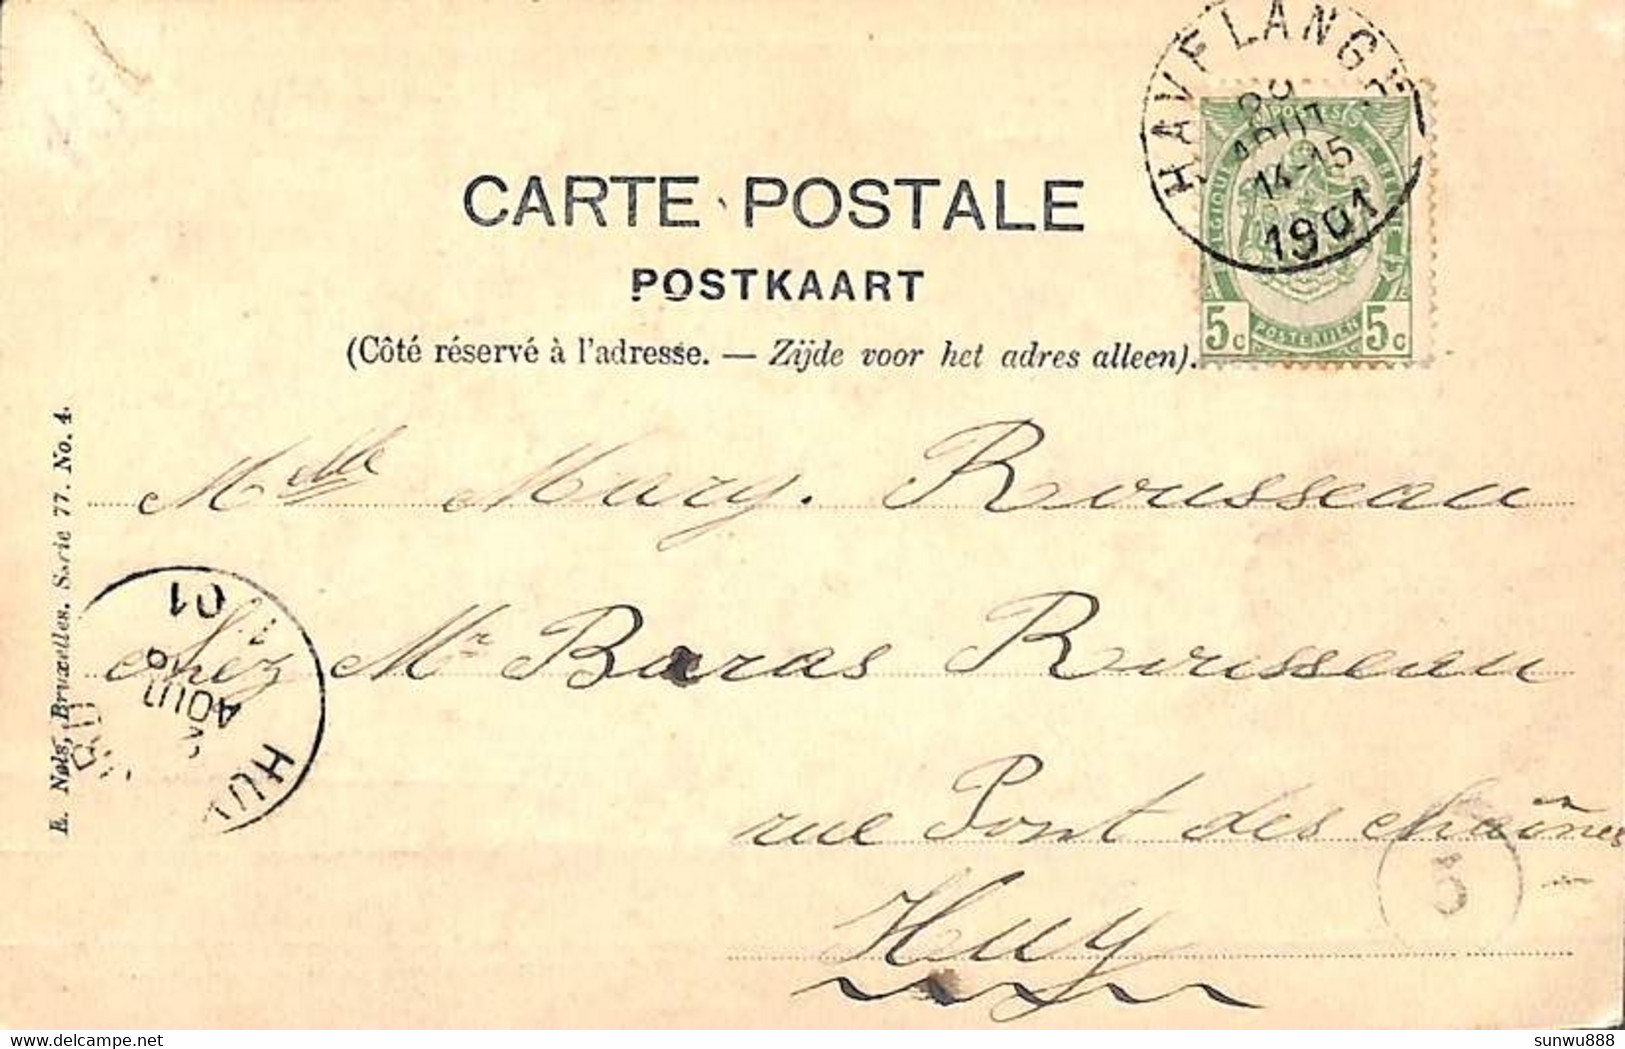 HAVELANGE
AOUT
14-15
1901
POSTES
5c POSTERIJEN 5c
CARTE POSTALE
POSTKAART
(Côté réservé à l'adresse. — Zijde voor het adres alleen).
Mlle Marg. Rousseau
chez Mr Baras Rousseau
rue Pont des chaînes
Huy
E. Nels, Bruxelles. Serie 77. No. 4.
01
AOUT
HUY
5
delcampe.net
sunwu888